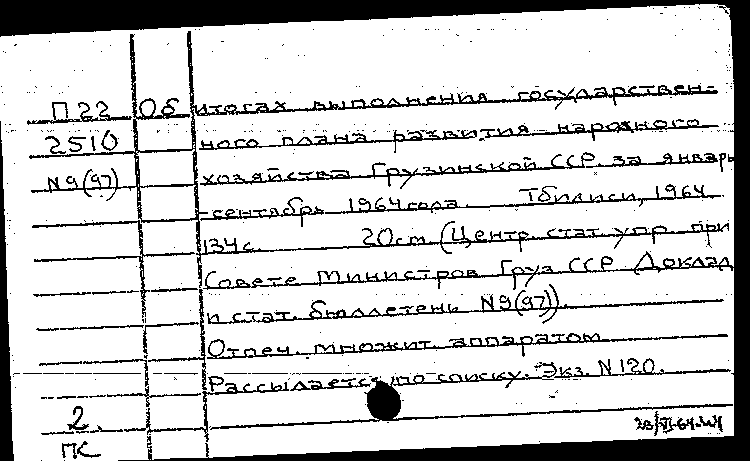 П22 Об итогах выполнения государствен-
2510 ного плана развития народного
N9(97) хозяйства Грузинской ССР. за январь
-сентябрь 1964 года. Тбилиси, 1964
134 с. 20см (Центр. стат. упр. при
Совете Министров Груз ССР Доклад
и стат. бюллетень N9(97)).
Отпеч. множит. аппаратом
Рассылается по списку. Экз. N120.
2.
ПК